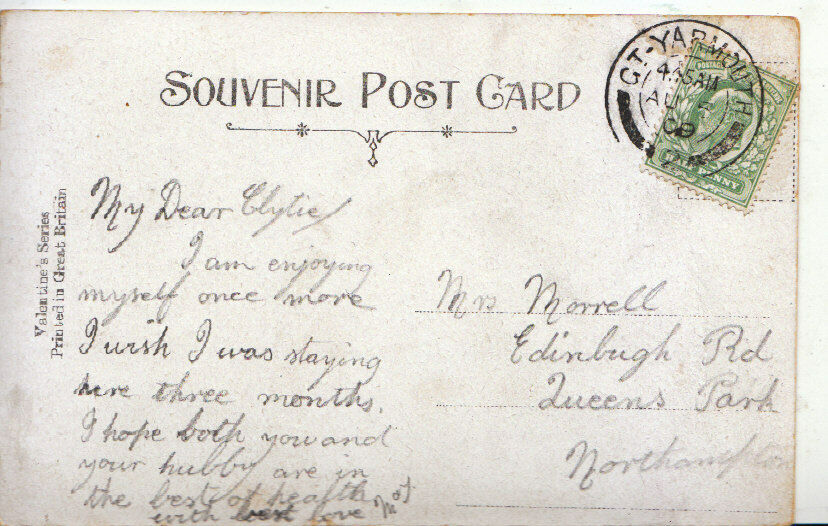 SOUVENIR POST CARD
GT-YARMOUTH
4.15AM
AU 5
09
POSTAGE
PENNY
Valentine's Series
Printed in Great Britain
My Dear Clytie/
I am enjoying
myself once more
I wish I was staying
here three months.
I hope both you and
your hubby are in
the best of health
with best love
Mrs Morrell
Edinbugh Rd
Queens Park
Northampton